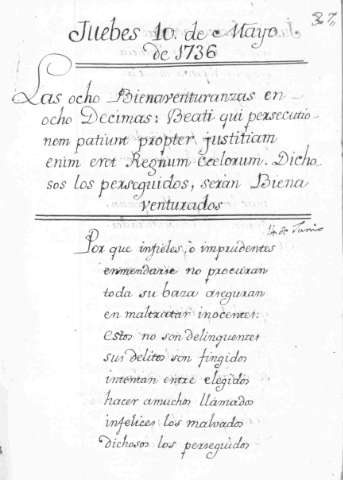 37,
Juebes 10. de Mayo
de 1736
Las ocho Bienaventuranzas en
ocho Decimas: Beati qui persecutio-
nem patiunt propter justitiam
enim eret Regnum Ceelorum. Dicho-
sos los perseguidos, seràn Biena
venturados
Por que infieles, ò imprudentes
enmendarse no procuran
toda su baza aseguran
en maltratar inocentes:
estos no son delinquentes
sus delitos son fingidos
intentan entre elegidos
hacer amuchos llamados
infelices los malvados
dichosos los perseguidos